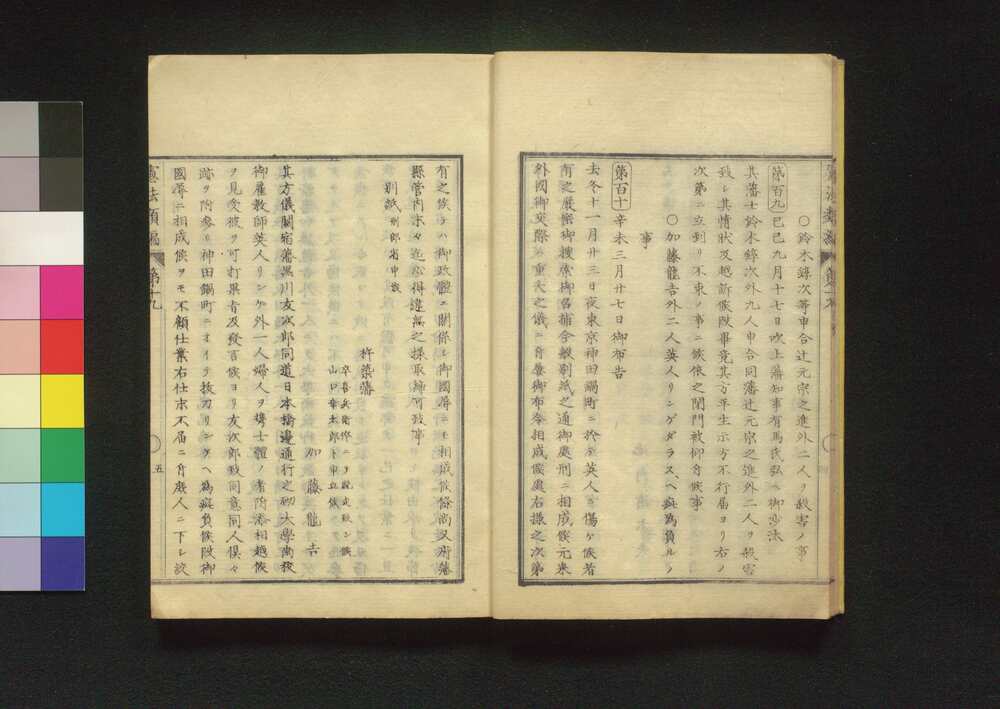 憲法類編 第十九
○鈴木錄次等申合辻元宗之進外二人ヲ殺害ノ事
第百九 己巳九月十七日吹上藩知事有馬氏弘ヘ御沙汰
其藩士鈴木錄次外九人申合同藩辻元宗之進外二人ヲ殺害
致シ其情狀及越訴候段畢竟其方平生示方不行屆ヨリ右ノ
次第ニ立到リ不束ノ事ニ候依之閉門被仰付候事
○加藤龍吉外二人英人リンゲダラスヘ疵爲負ルノ
事
第百十 辛未三月廿七日御布告
去冬十一月廿三日夜東京神田鍋町ニ於テ英人ヲ傷ケ候者
有之嚴密御搜索御召捕今般別紙之通御處刑ニ相成候元來
外國御交際ノ重大之儀ニ付屢御布令相成候處右樣之次第
有之候テハ御政體ニ關係シ御國辱ニモ相成候條尚又府藩
縣管內末々迄心得違無之樣取締可致事
別紙 刑部省申渡
杵築藩
卒喜兵衞悴ニテ脫走致シ候
山口幸太郎ト申立候
加藤龍吉
其方儀關宿藩黑川友次郎同道日本橋邊通行之砌大學南校
御雇敎師英人リンゲ外一人婦人ヲ携士體ノ者附添相越候
ヲ見受彼ヲ可打果者及發言候ヨリ友次郎致同意同人俱々
跡ヲ附參リ神田鍋町ニオイテ拔刀リンゲヘ爲疵負候段御
國辱ニ相成候ヲモ不顧仕業右仕末不屆ニ付庶人ニ下シ絞
憲法類編 第十九
五